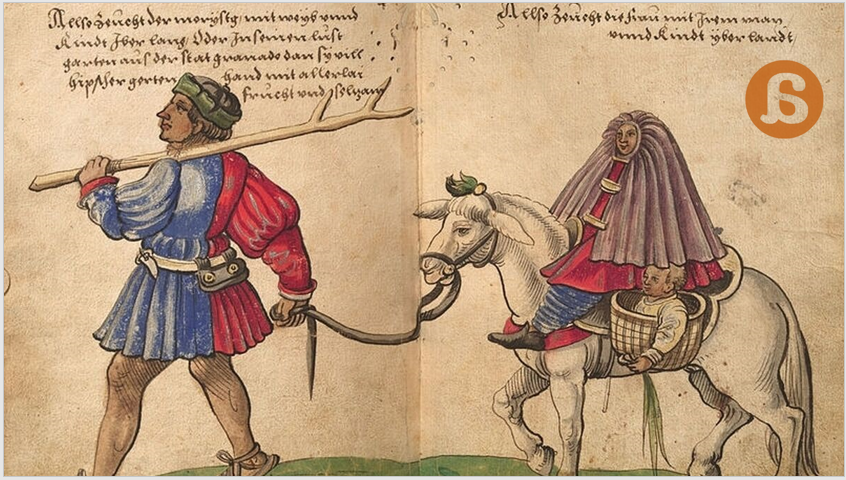 Allso Zeucht der morysck mit weyb vnnd
Kindt Iber lanng Oder In seinen lust
garten aus der stat granado dan sy vill
hipscher gerten hand mit allerlai
frucht vnd selzam
Allso Zeucht die frau mit Irem man
vnnd Kindt yber landt